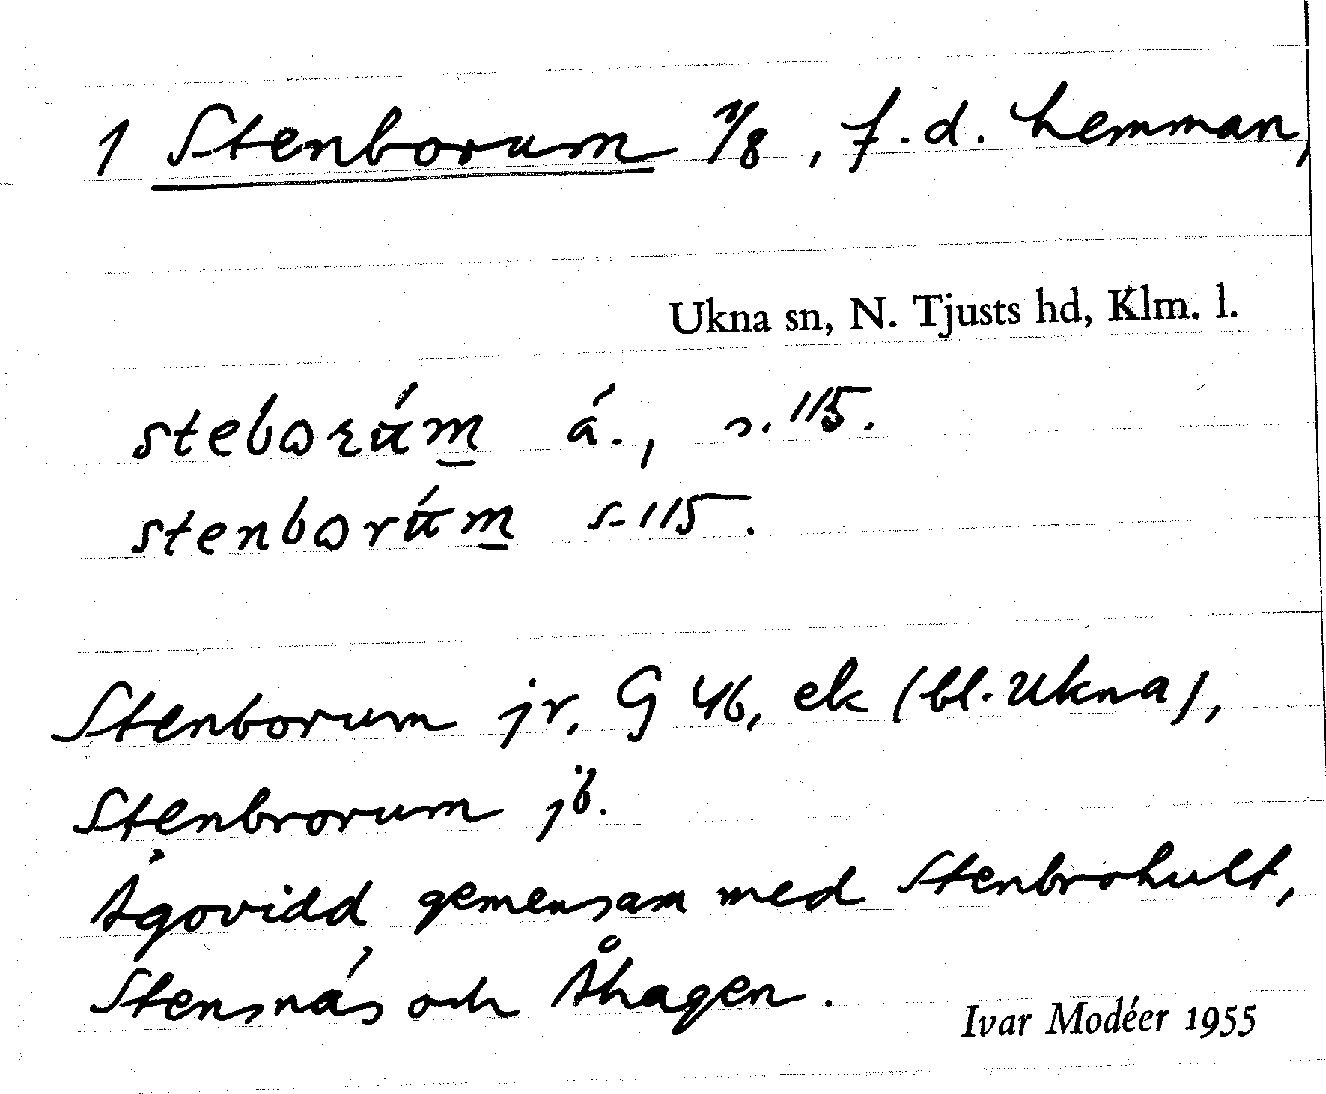 1 Stenborum 1/8, f.d. hemman,
Ukna sn, N. Tjusts hd, Klm. l.
á., s. 115.
s. 115.
Stenborum jr, G 46, ek (bl. Ukna),
Stenbrorum jb.
Ägovidd gemensam med Stenbrohult,
Stensnäs och Åhagen.
Ivar Modéer 1955